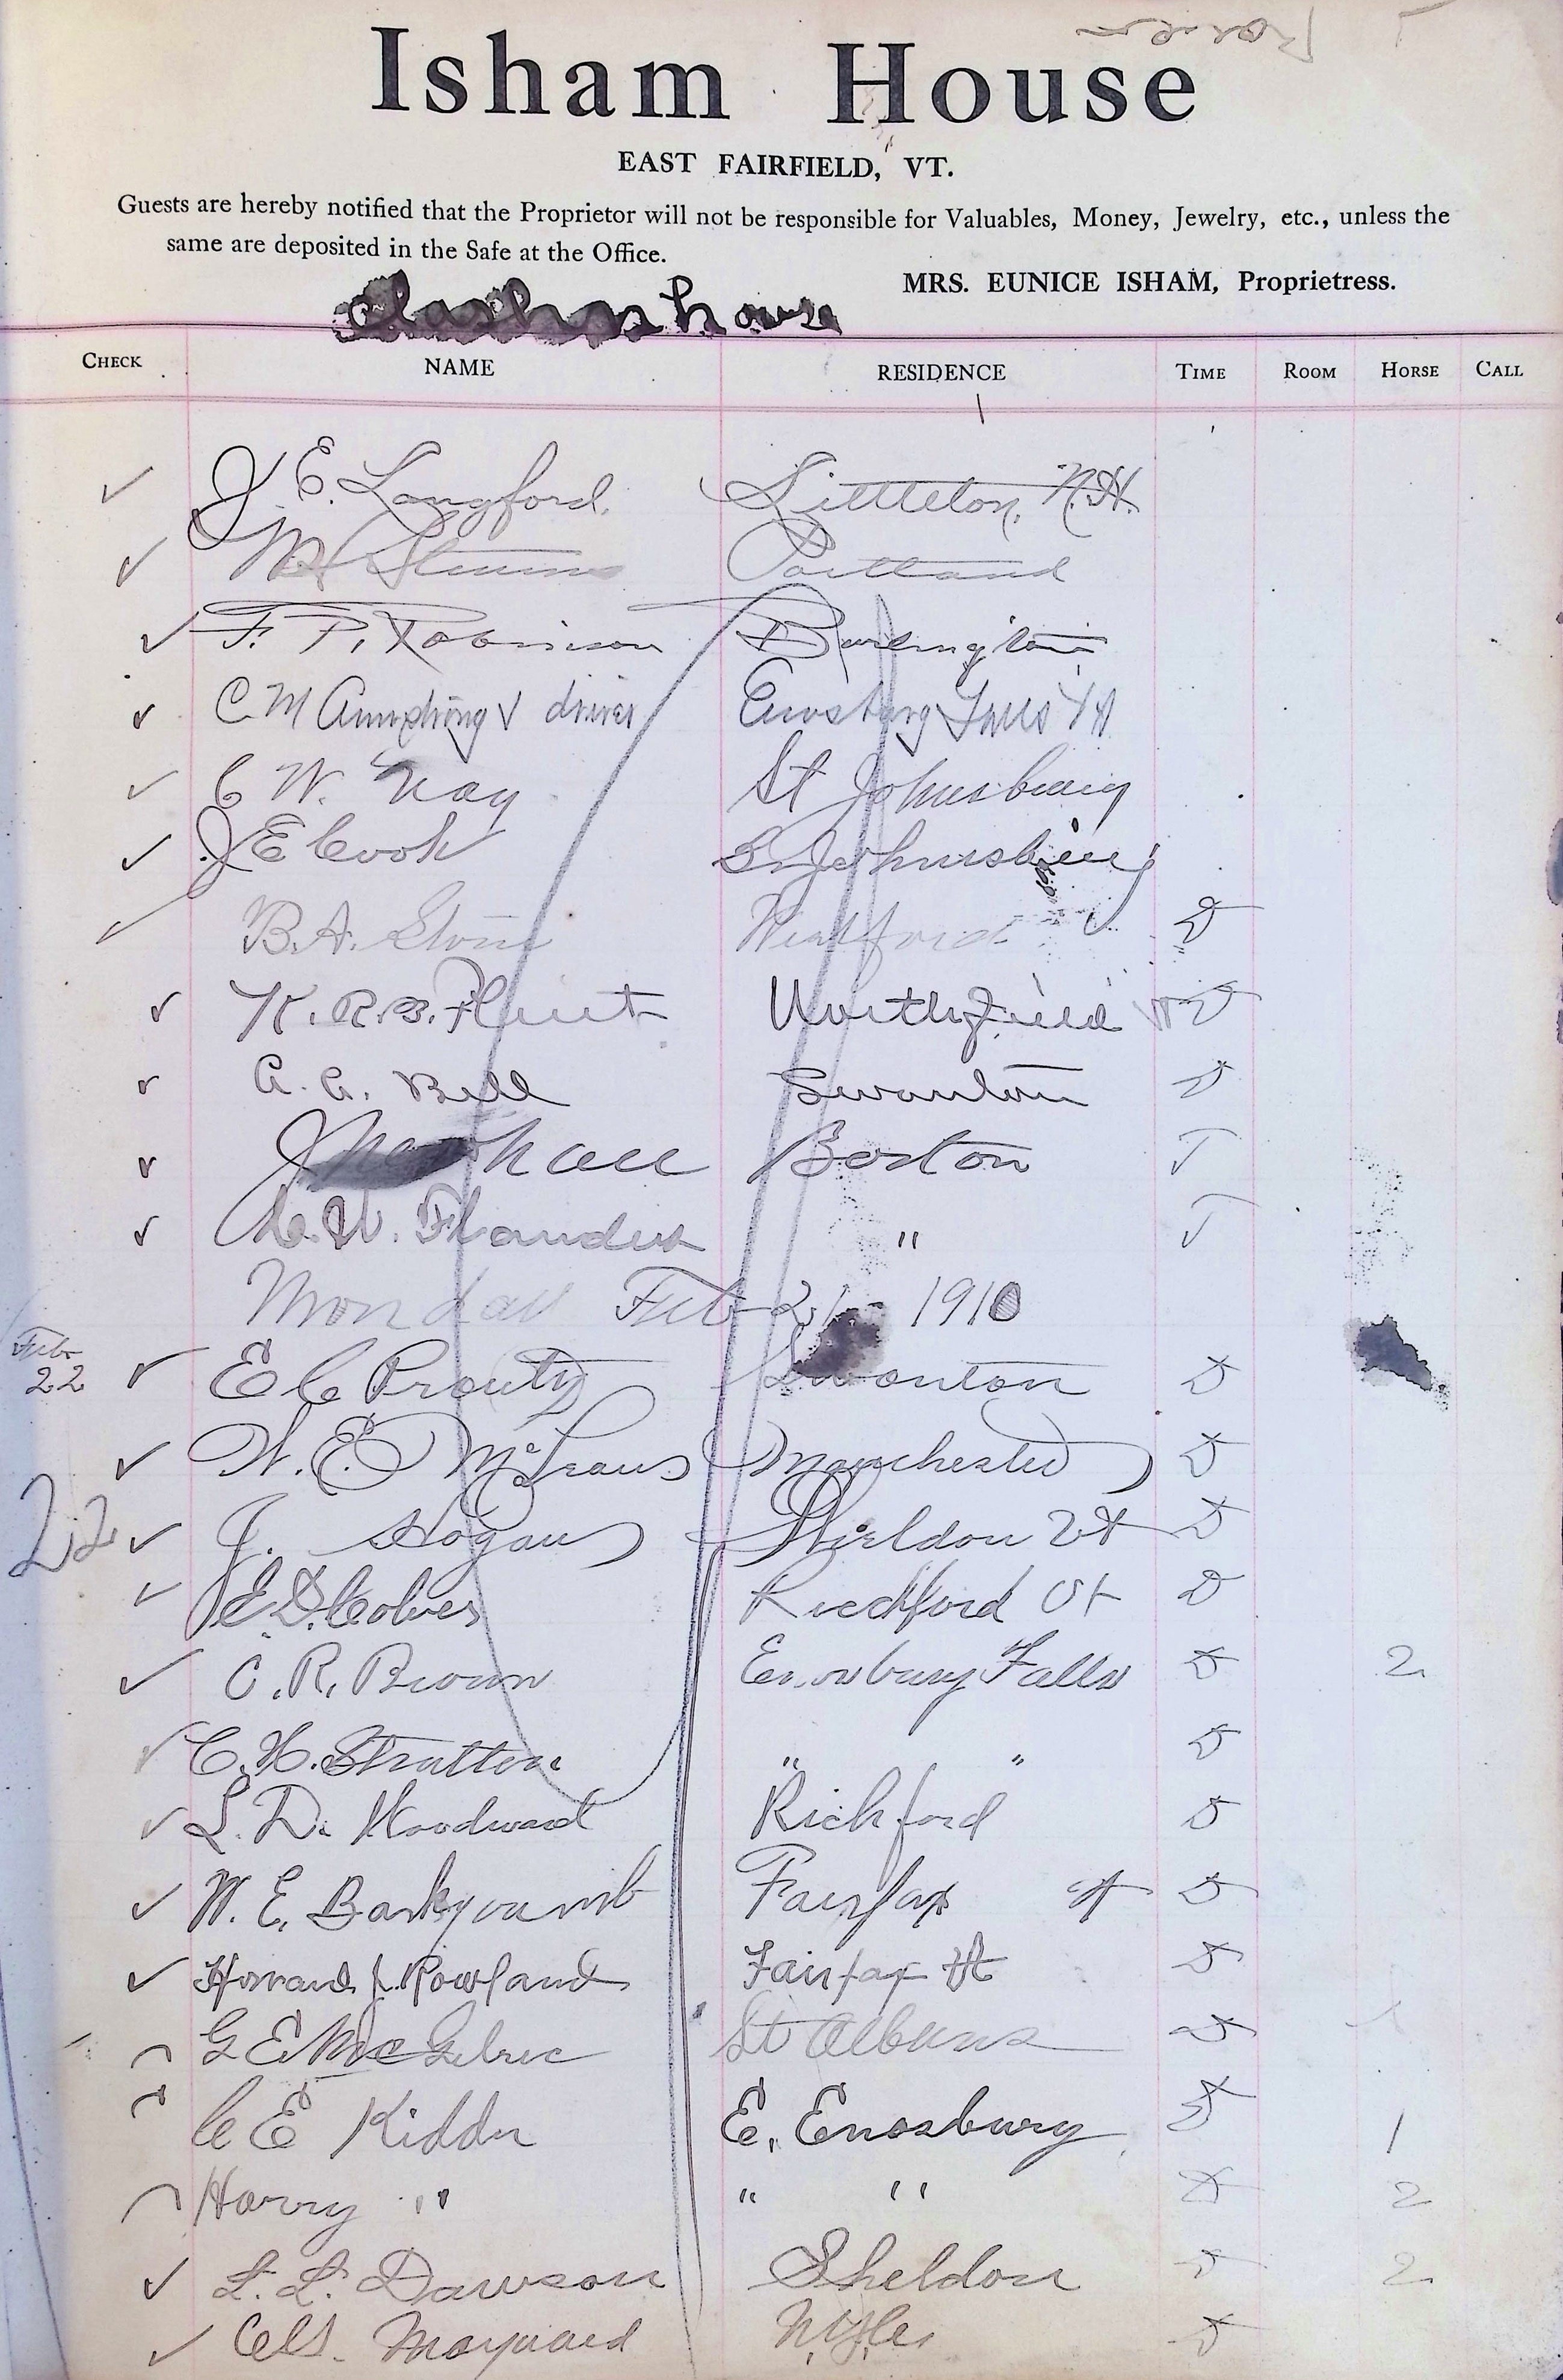 Isham House
EAST FAIRFIELD, VT.
Guests are hereby notified that the Proprietor will not be responsible for Valuables, Money, Jewelry, etc., unless the
same are deposited in the Safe at the Office.
MRS. EUNICE ISHAM, Proprietress.
house
CHECK NAME RESIDENCE TIME ROOM HORSE CALL
✓ J E. Langford Littleton, N.H.
✓ Portland
✓ F. P. Robinson Burlington
✓ C M Armstrong & driver Enosburg Falls Vt
✓ C W. Nay St Johnsbury
✓ J E Cook St Johnsbury
✓ B.A. Stone D
✓ K. R. B. Flint Northfield Vt D
✓ A. A. Bell Swanton D
✓ J Boston T
✓ Flanders " T
Monday Feb 21 1910
Feb
22 ✓ E C Prouty Swanton D
✓ W. E. Manchester D
22 ✓ J. Hogan Sheldon Vt D
✓ E. D. Richford Vt D
✓ C. R. Brown Enosburg Falls D 2
✓ C. H. Stratton " " D
✓ L. D. Woodward Richford D
✓ W. E. Fairfax Vt D
✓ Howard J. Rowland Fairfax Vt D
G E St Albans D
C E Kidder E. Enosburg D 1
Harry " " " D 2
✓ L. L. Dawson Sheldon D 2
✓ Maynard D